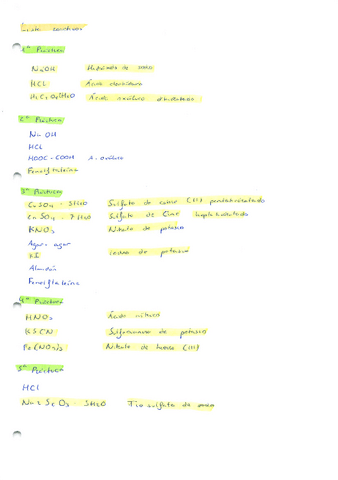 1ª Práctica
NaOH Hidróxido de sodio
HCl Ácido clorhídrico
H₂C₂O₄·2H₂O Ácido oxálico dihidratado
2ª Práctica
NaOH
HCl
HOOC-COOH A. oxálico
Fenolftaleína
3ª Práctica
CuSO₄ · 5H₂O Sulfato de cobre (II) pentahidratado
ZnSO₄ · 7H₂O Sulfato de Cinc heptahidratado
KNO₃ Nitrato de potasio
Agar-agar
KI Ioduro de potasio
Almidón
Fenolftaleína
4ª Práctica
HNO₃ Ácido nítrico
KSCN de potasio
Fe(NO₃)₃ Nitrato de hierro (III)
5ª Práctica
HCl
Na₂S₂O₃ · 5H₂O Tiosulfato de sodio